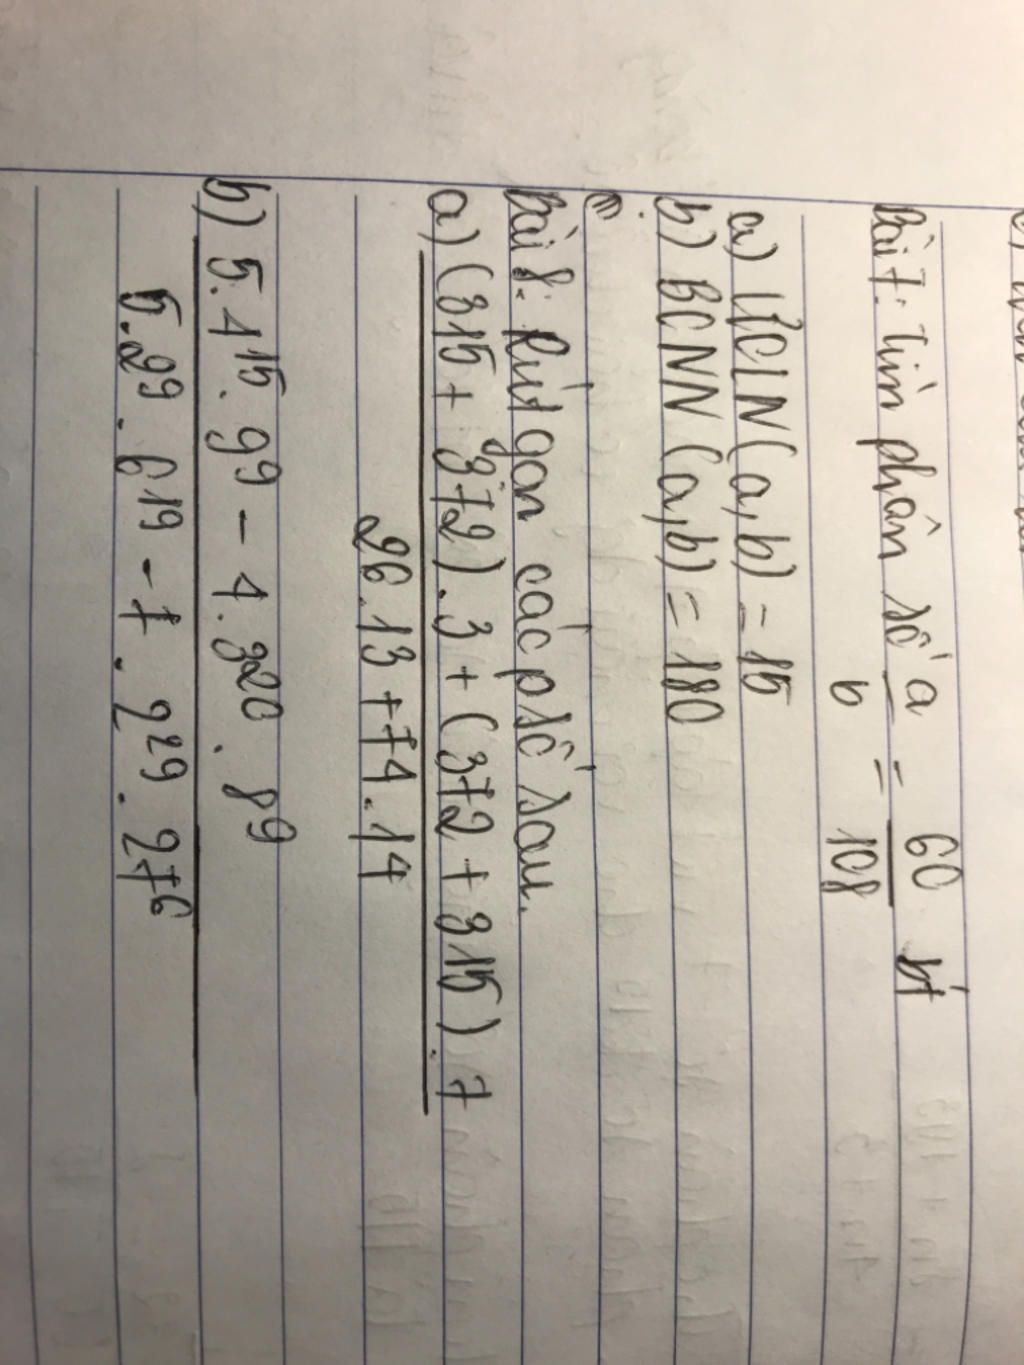 Bài 7: Tìm phân số a/b = 60/108 bt
a) ƯCLN(a,b) = 15
b) BCNN (a,b) = 180
Bài 8: Rút gọn các p số sau.
a) (315 + 372).3 + (372 + 315).7
26.13 + 74.14
b) 5.4¹⁵.9⁹ - 4.3²⁰.8⁹
5.2⁹.6¹⁹ - 7.2²⁹.27⁶